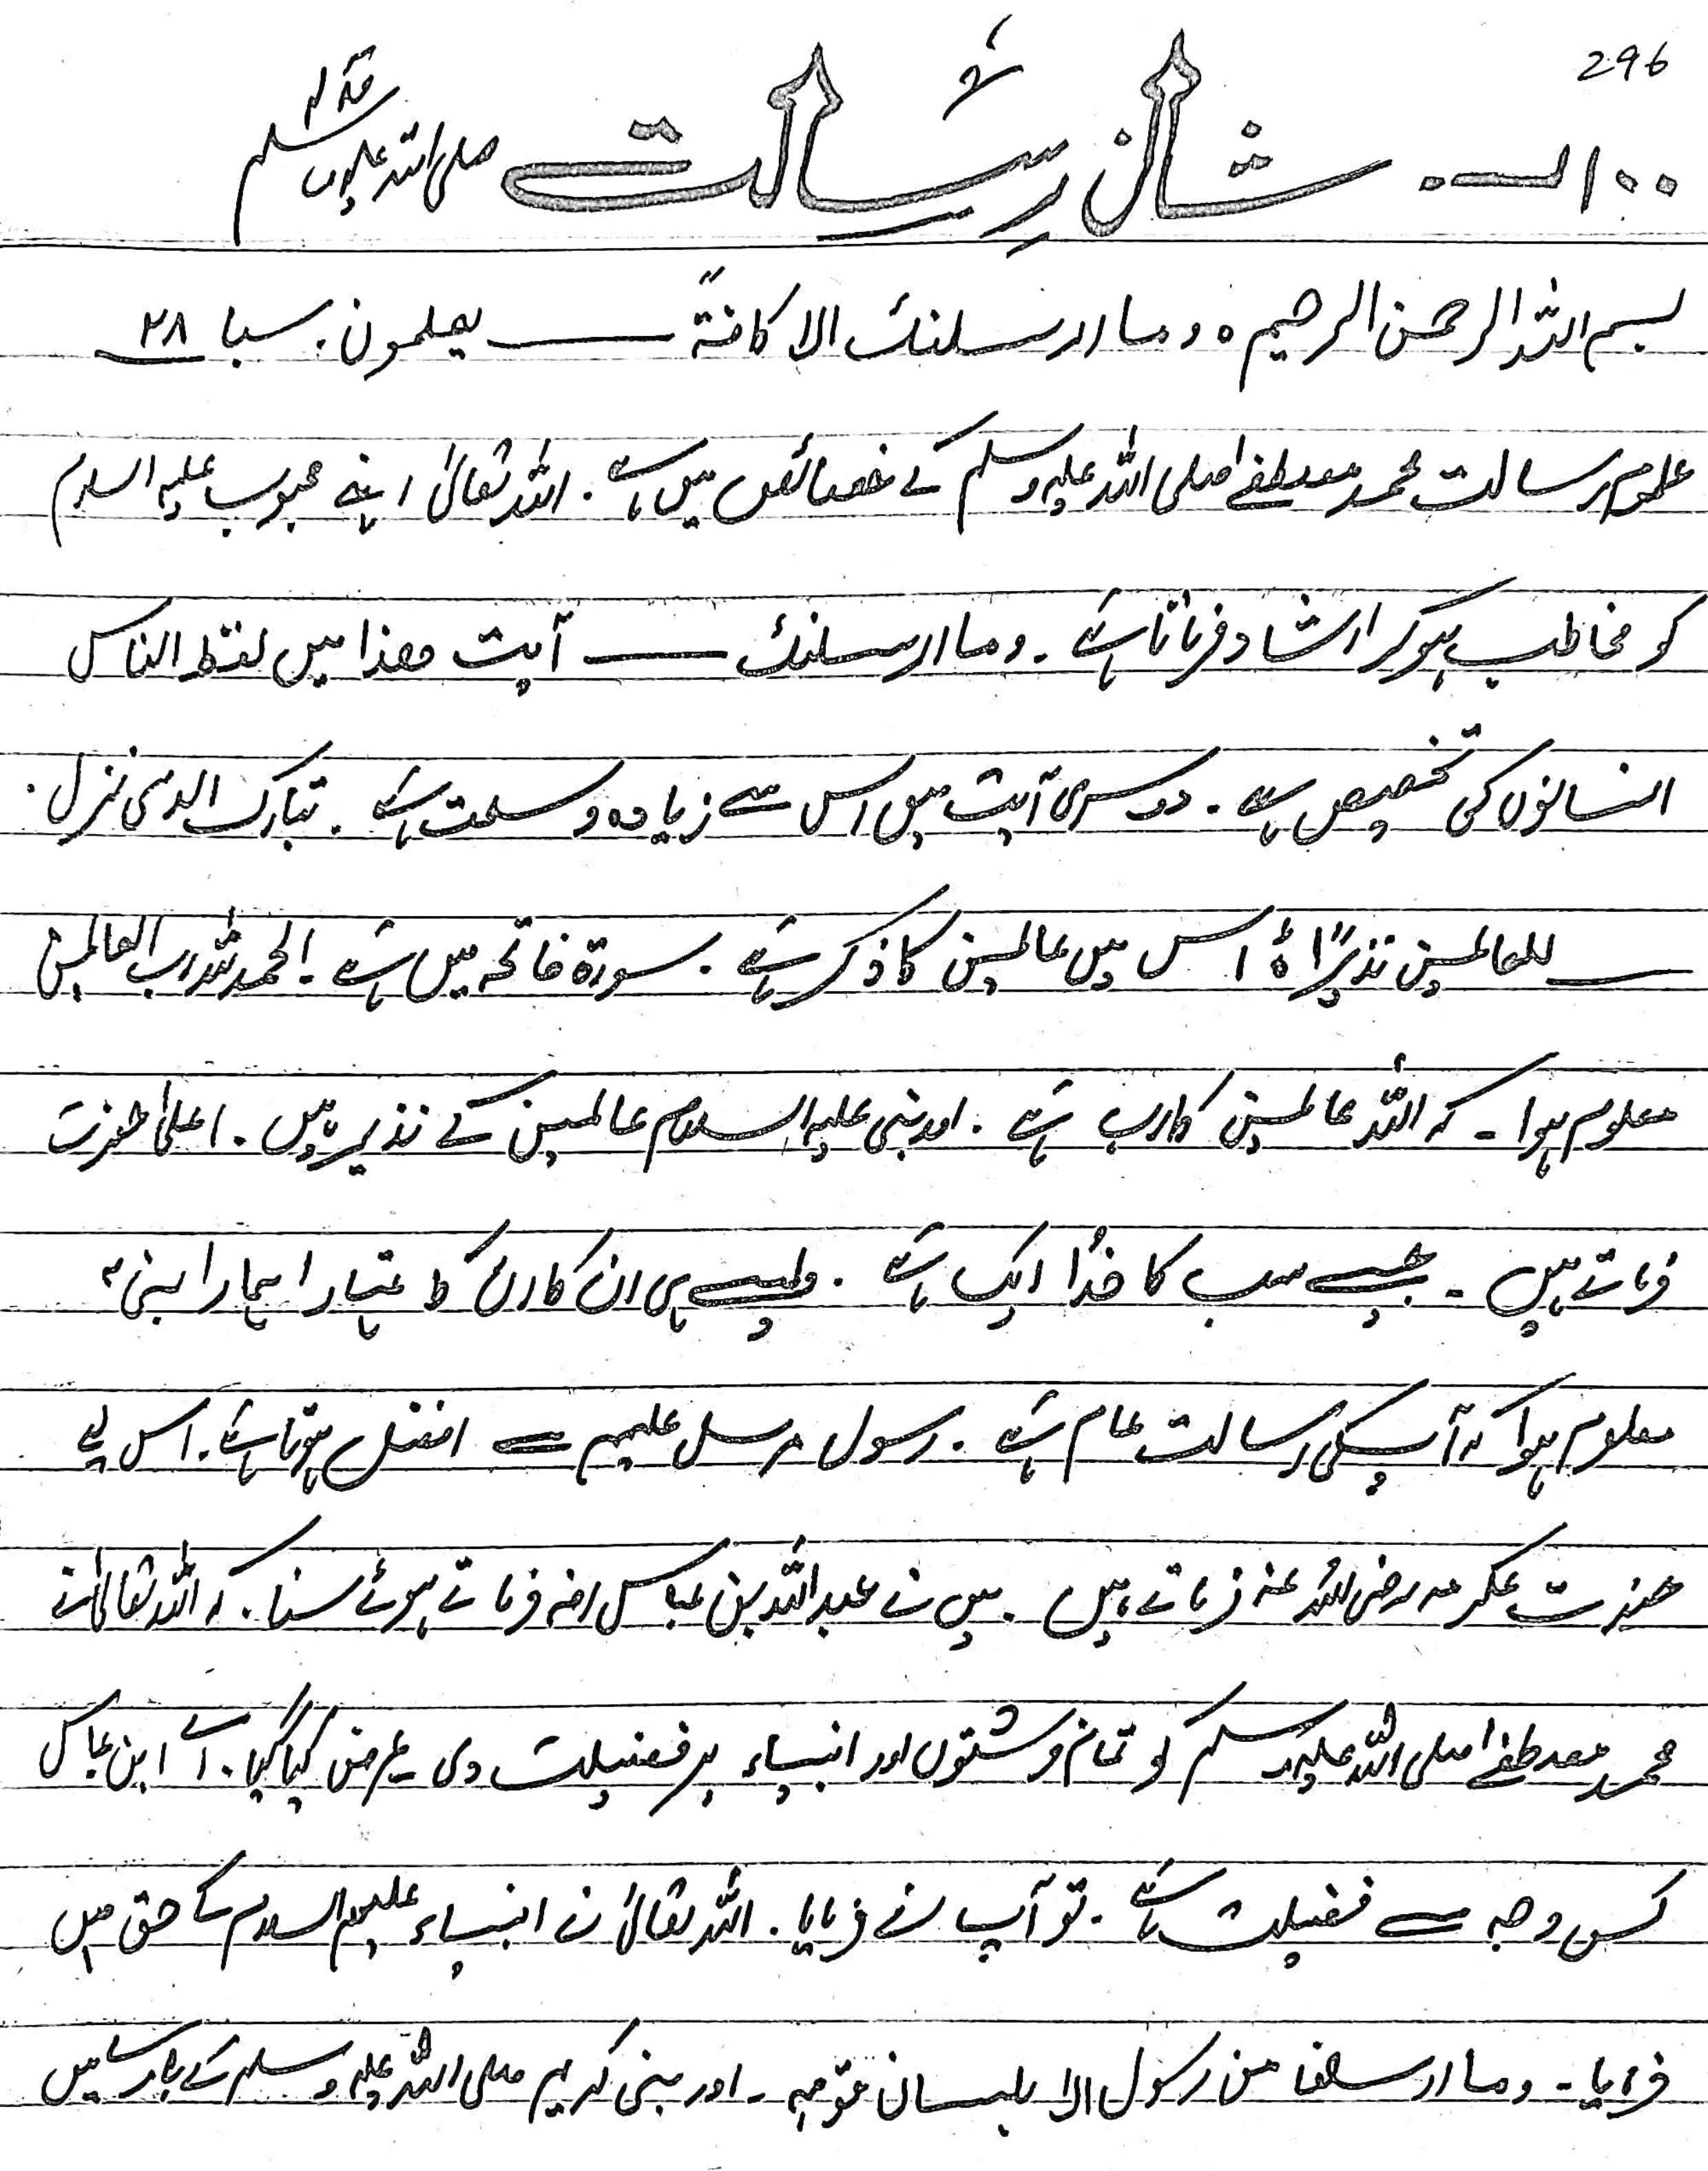 296
۱۰۰ شانِ رسالت صلی اللہ علیہ وسلم
بسم اللہ الرحمن الرحیم ہ وما ارسلنک الا کافۃً ——— یعلمون. سبا ۲۸
علوم رسالت محمد مصطفےٰ صلی اللہ علیہ وسلم کے خصائص میں ہے. اللہ تعالیٰ اپنے محبوب علیہ السلام
کو مخاطب ہوکر ارشاد فرماتا ہے. وما ارسلنک ——— آیت ھذا میں لفظ الناس
انسانوں کی تخصیص ہے. دوسری آیت میں اس سے زیادہ وسعت ہے. تبارک الذی نزل.
— للعالمین نذیرًا ہ اس میں عالمین کا ذکر ہے. سورۃ فاتحہ میں ہے. الحمد للہ رب العالمین
معلوم ہوا - کہ اللہ عالمین کا رب ہے. اور نبی علیہ السلام عالمین کے نذیر ہیں. اعلیٰ حضرت
فرماتے ہیں - جیسے سب کا خدا ایک ہے. ویسے ہی ان کا ان کا تمہارا ہمارا نبی
معلوم ہوا کہ آپ کی رسالت عام ہے. رسول مرسل علیہم سے افضل ہوتا ہے. اس لیے
حضرت عکرمہ رضی اللہ عنہ فرماتے ہیں. میں نے عبد اللہ بن عباس رضہ فرماتے ہوئے سنا. کہ اللہ تعالیٰ نے
محمد مصطفےٰ صلی اللہ علیہ وسلم کو تمام فرشتوں اور انبیاء پر فضیلت دی عرض کیا گیا. اے ابن عباس
کس وجہ سے فضیلت ہے. تو آپ نے فرمایا. اللہ تعالیٰ نے انبیاء علیہم السلام کے حق میں
فرمایا - وما ارسلنا من رسول الا بلسان قومہ - اور نبی کریم صلی اللہ علیہ وسلم کے بارے میں